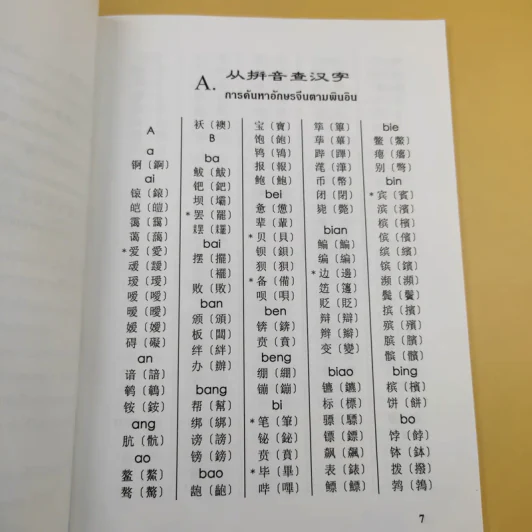 A. 从拼音查汉字
การค้นหาอักษรจีนตามพินอิน
A
a
锕（錒）
ai
锿（鎄）
皑（皚）
霭（靄）
蔼（藹）
*爱（愛）
叆（靉）
瑷（璦）
嗳（噯）
暧（曖）
嫒（嬡）
碍（礙）
an
谙（諳）
鹌（鵪）
铵（銨）
ang
肮（骯）
ao
鳌（鰲）
骜（驁）
袄（襖）
B
ba
鲅（鮁）
钯（鈀）
坝（壩）
*罢（罷）
bai
摆（擺）
（襬）
败（敗）
ban
颁（頒）
板（闆）
绊（絆）
办（辦）
bang
帮（幫）
绑（綁）
谤（謗）
镑（鎊）
bao
龅（齙）
宝（寶）
饱（飽）
鸨（鴇）
报（報）
鲍（鮑）
bei
惫（憊）
辈（輩）
*贝（貝）
钡（鋇）
狈（狽）
*备（備）
呗（唄）
ben
锛（錛）
贲（賁）
beng
绷（綳）
镚（鏰）
bi
*笔（筆）
铋（鉍）
贲（賁）
*毕（畢）
哔（嗶）
筚（篳）
荜（蓽）
跸（蹕）
滗（潷）
币（幣）
闭（閉）
毙（斃）
bian
鳊（鯿）
编（編）
*边（邊）
笾（籩）
贬（貶）
辩（辯）
辫（辮）
变（變）
biao
镳（鑣）
标（標）
骠（驃）
镖（鏢）
飙（飆）
表（錶）
鳔（鰾）
bie
鳖（鱉）
瘪（癟）
别（彆）
bin
*宾（賓）
滨（濱）
槟（檳）
傧（儐）
缤（繽）
镔（鑌）
濒（瀕）
鬓（鬢）
摈（擯）
殡（殯）
膑（臏）
髌（髕）
bing
槟（檳）
饼（餅）
bo
饽（餑）
钵（鉢）
拨（撥）
鹁（鵓）
7